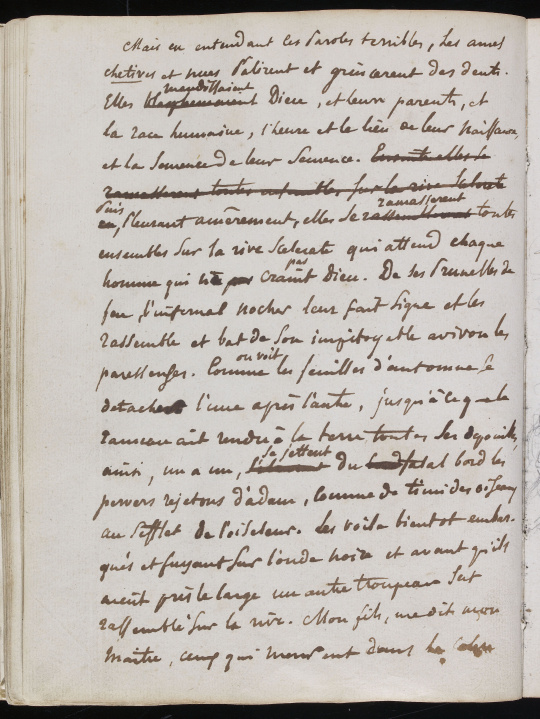 Mais en entendant ces Paroles terribles, les ames
chetives et nues Palirent et grincerent des dents.
maudissaient
Elles blasphemerent Dieu, et leurs parents, et
la race humaine, l'heure et le lieu de leur naissance,
et la Semence de leur Semence. Ensuite elles se
ramasserent toutes ensembles sur la rive scelerate
Puis ramasserent
en, Pleurant amèrement, elles se rassemblerent toutes
ensembles sur la rive scelerate qui attend chaque
pas
homme qui ne pas craint Dieu. De ses Prunelles de
feu, l'infernal nocher leur fait signe et les
rassemble et bat de son impitoyable aviron les
on voit
paresseuses. Comme les feuilles d'automne se
detachent l'une après l'autre, jusqu'à ce que le
rameau ait rendu à la terre toutes ses depouilles,
se jettent
ainsi, un a un, du fatal bord les
pervers rejetons d'adam, comme de timides oiseaux
au sifflet de l'oiseleur. Les voila bientot embar-
qués et fuyant sur l'onde noire et avant qu'ils
aient pris le large un autre troupeau s'est
rassemblé sur la rive. Mon fils, me dit mon
maitre, ceux qui meurent dans la